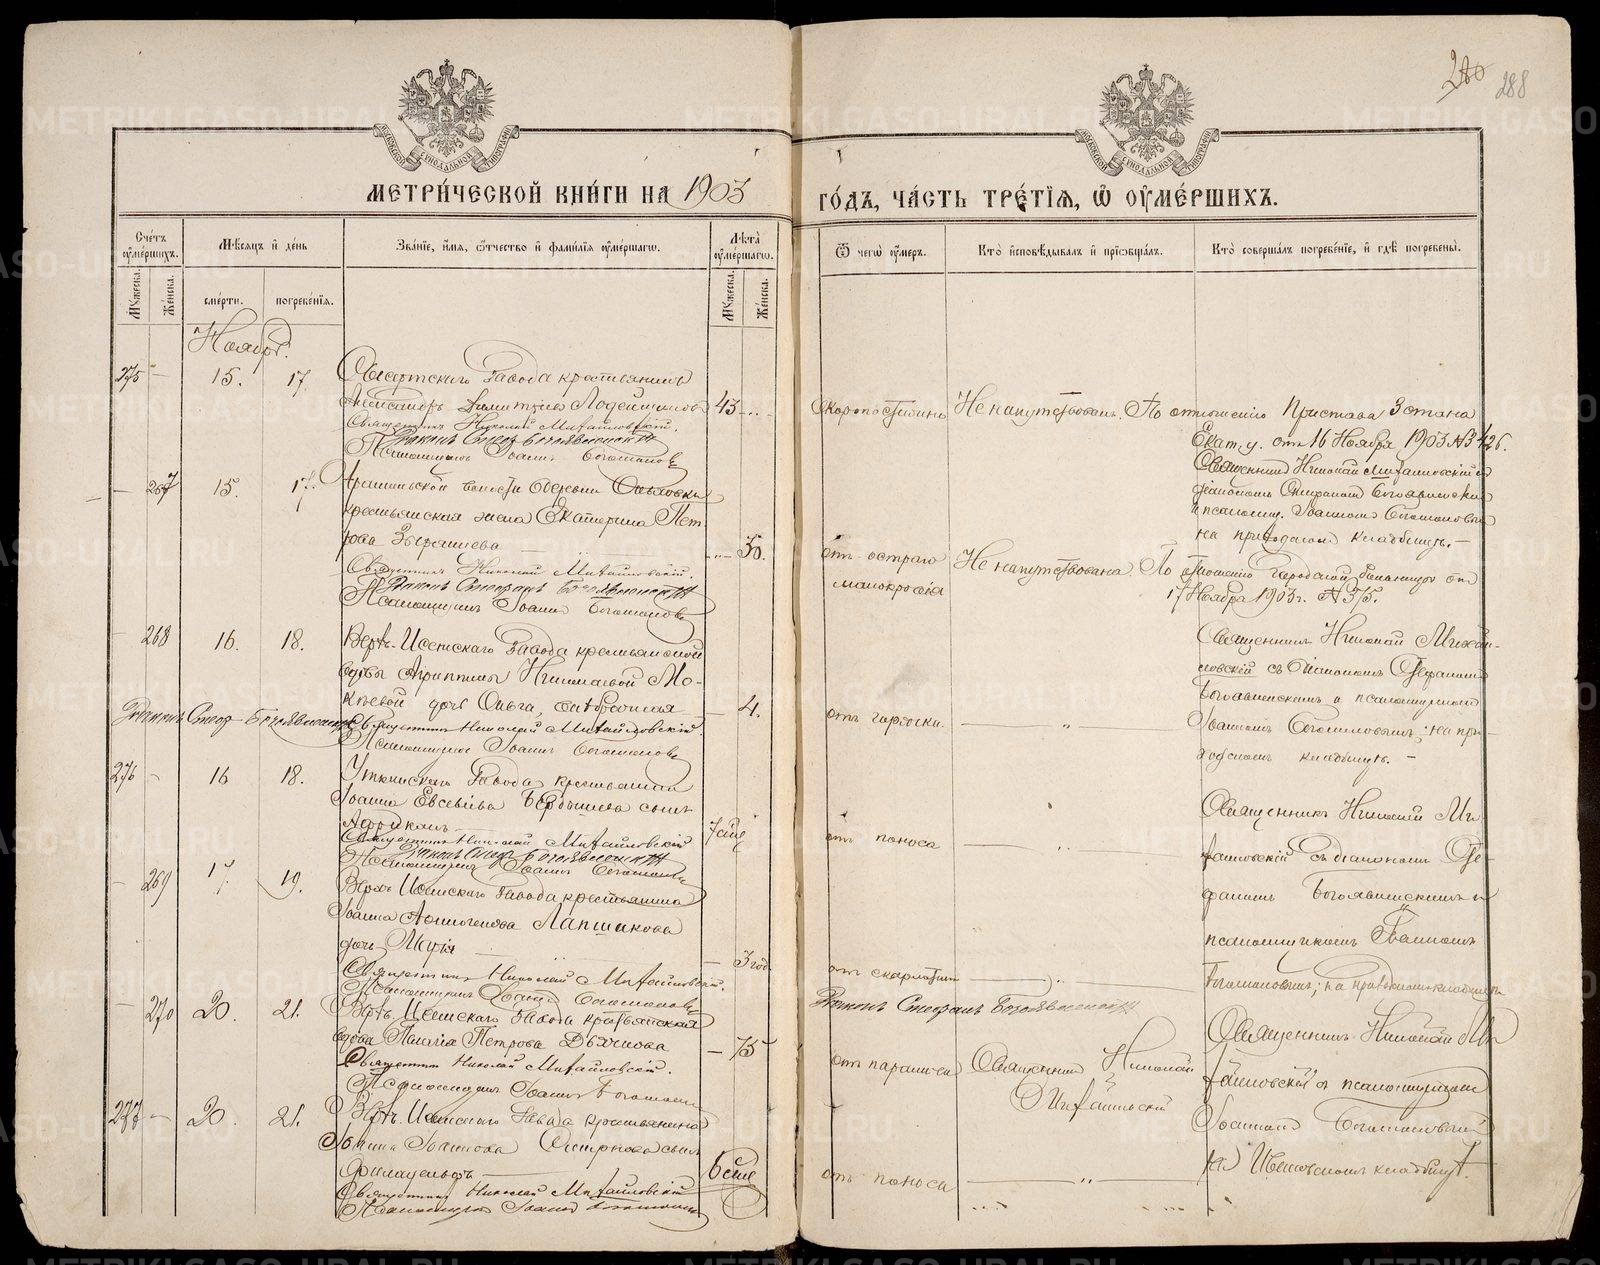 280 288
МЕТРИ́ЧЕСКОЙ КНИ́ГИ НА 1903
ГО́ДЪ, ЧА́СТЬ ТРЕ́ТІЯ, Ѡ҆ ОУ҆МЕ́РШИХЪ.
Сче́тъ оу҆ме́ршихъ.
Мѣсяцъ и҆ де́нь
Зва́ніе, и҆мя, ѻ҆тчество и҆ фами́лія оу҆ме́ршагѡ.
Лѣта̀ оу҆ме́ршагѡ.
Ѿ чегѡ̀ оу҆́меръ.
Кто̀ и҆сповѣ́дывалъ и҆ прїѡбща́лъ.
Кто̀ соверша́лъ погребе́ніе, и҆ гдѣ̀ погребены̀.
Му́жеска. Же́нска.
сме́рти. погребе́нїя.
Му́жеска. Же́нска.
Ноябрь.
275 — 15. 17. Сысертскаго Завода крестьянинъ
Александръ Димитріевъ Лодейщиковъ 43
Священникъ Николай Михайловскій.
Діаконъ Стефанъ Богоявленскій
Псаломщикъ Іоаннъ Богомоловъ
скоропостижно Не напутствованъ. По отношенію Пристава 3 стана
Екат. у. отъ 16 Ноября 1903 № 3426.
Священникъ Николай Михайловскій съ
діакономъ Стефаномъ Богоявленским
и псаломщ. Іоанномъ Богомоловым
на приходском кладбищѣ.—
— 267 15. 17. Арамильской волости деревни
крестьянская жена Екатерина Пет-
рова Зверянсева 30.
Священникъ Николай Михайловскій.
Діаконъ Стефанъ Богоявленскій
Псаломщикъ Іоаннъ Богомоловъ
отъ остраго
малокровія
Не напутствована. По отношенію Городской больницы отъ
17 Ноября 1903 г. № 375.
268 16. 18. Верхъ-Исетскаго Завода крестьянской
вдовы Агриппины Николаевой Мо-
кѣевой дочь Ольга, незаконная 4.
Діаконъ Стеф. Богоявленскій
Священникъ Николай Михайловскій.
Псаломщикъ Іоаннъ Богомоловъ
отъ горячки. — „ —
Священникъ Николай Михай-
ловскій съ діакономъ Стефаномъ
Богоявленскимъ и псаломщикомъ
Іоанномъ Богомоловымъ; на при-
ходскомъ кладбищѣ.—
276 — 16 18. Уткинскаго Завода крестьянина
Іоанна Евсевіева Бердышева сынъ
Африканъ 7 дней
Священникъ Николай Михайловскій
Діаконъ Стеф. Богоявленскій
Псаломщикъ Іоаннъ Богомоловъ
отъ поноса — „
Священникъ Николай Ми-
хайловскій съ діакономъ Сте-
фаномъ Богоявленскимъ и
псаломщикомъ Іоанномъ
Богомоловымъ; на приходскомъ кладбищѣ
— 269 17. 19. Верхъ-Исетскаго Завода крестьянина
Іоанна Аѳиногенова Лапшакова
дочь Марія — 3 год.
Священникъ Николай Михайловскій.
Псаломщикъ Іоаннъ Богомоловъ
отъ скарлатины — „ —
Діаконъ Стефанъ Богоявленскій
— 270 20. 21. Верхъ-Исетскаго Завода крестьянская
вдова Пелагія Петрова Дьячкова — 75
Священникъ Николай Михайловскій.
Псаломщикъ Іоаннъ Богомоловъ
отъ паралича Священникъ Николай
Михайловскій
Священникъ Николай Ми-
хайловскій съ псаломщикомъ
Іоанномъ Богомоловымъ
на Ивановскомъ кладбищѣ.
277 — 20. 21. Верхъ-Исетскаго Завода крестьянина
Іоанна Іоаннова сынъ
Филадельфъ 6 дней
Священникъ Николай Михайловскій
Псаломщикъ Іоаннъ Богомоловъ
отъ поноса — „ —
METRIKI.GASO-URAL.RU